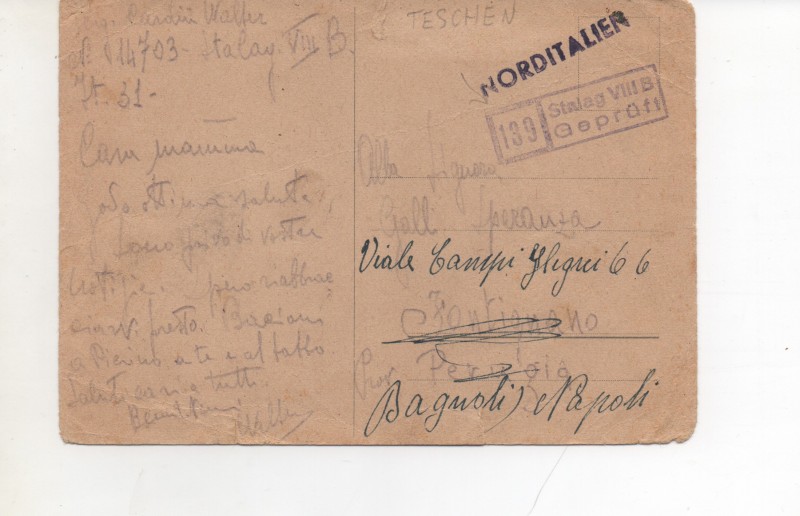 Cardini Walter
N. 14703 - Stalag VIII B.
Cara mamma
godo ottima salute,
sono privo di vostre
notizie. spero riabbrac
ciarvi presto. Bacioni
a Pierino a te e al babbo
Saluti cari a tutti
Walter
TESCHEN
NORDITALIEN
139 Stalag VIII B
Geprüft
Alla Signora
Galli Speranza
Viale Campi Flegrei 66
Fontignano
Prov. Perugia
Bagnoli) Napoli